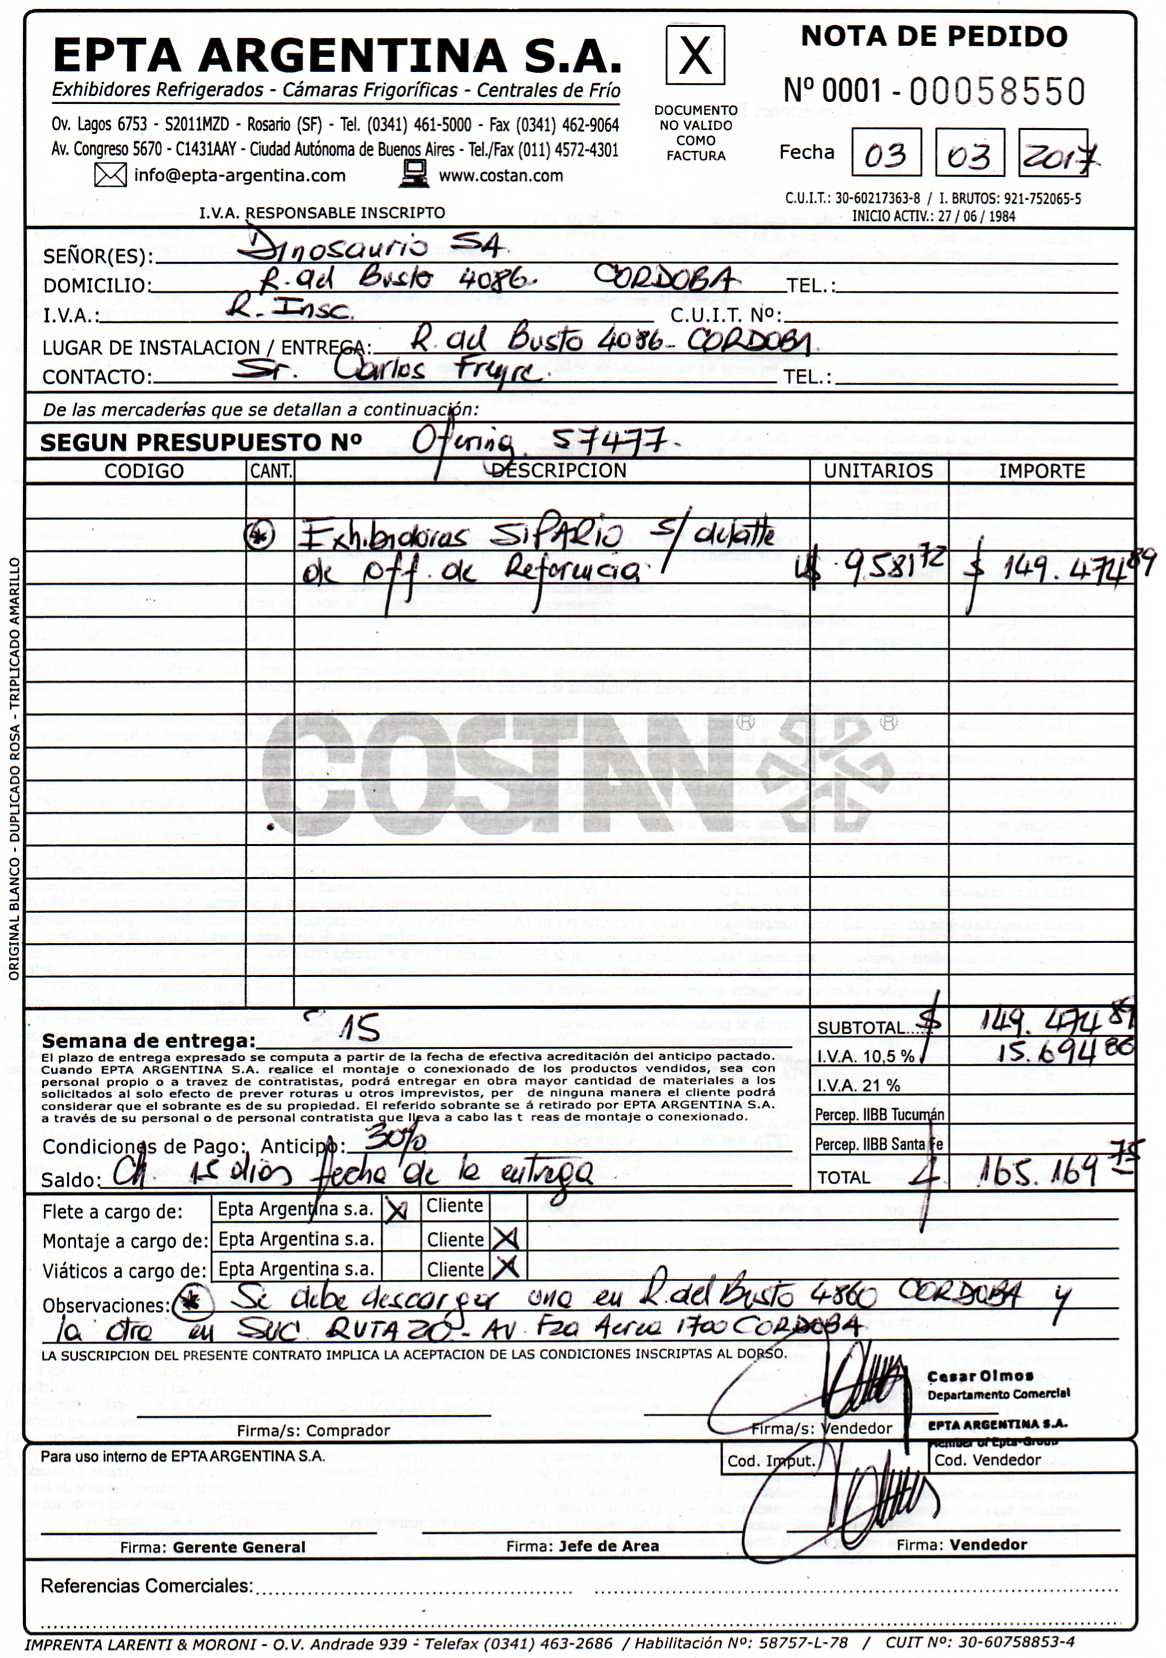 EPTA ARGENTINA S.A.
Exhibidores Refrigerados - Cámaras Frigoríficas - Centrales de Frío
Ov. Lagos 6753 - S2011MZD - Rosario (SF) - Tel. (0341) 461-5000 - Fax (0341) 462-9064
Av. Congreso 5670 - C1431AAY - Ciudad Autónoma de Buenos Aires - Tel./Fax (011) 4572-4301
info@epta-argentina.com www.costan.com
I.V.A. RESPONSABLE INSCRIPTO
X
DOCUMENTO
NO VALIDO
COMO
FACTURA
NOTA DE PEDIDO
Nº 0001 - 00058550
Fecha 03 03 2017
C.U.I.T.: 30-60217363-8 / I. BRUTOS: 921-752065-5
INICIO ACTIV.: 27 / 06 / 1984
SEÑOR(ES): Dinosaurio SA
DOMICILIO: R. del Busto 4086 CORDOBA TEL.:
I.V.A.: R. Insc. C.U.I.T. Nº:
LUGAR DE INSTALACION / ENTREGA: R. del Busto 4086 - CORDOBA
CONTACTO: Sr. Carlos Freyre TEL.:
De las mercaderías que se detallan a continuación:
SEGUN PRESUPUESTO Nº Ofering 57477.
CODIGO CANT. DESCRIPCION UNITARIOS IMPORTE
* Exhibidoras SIPARIO s/ detalle
de Off. de Referencia U$ 9.581,72 $ 149.474,89
COSTAN ® ®
ORIGINAL BLANCO - DUPLICADO ROSA - TRIPLICADO AMARILLO
Semana de entrega: 15
El plazo de entrega expresado se computa a partir de la fecha de efectiva acreditación del anticipo pactado.
Cuando EPTA ARGENTINA S.A. realice el montaje o conexionado de los productos vendidos, sea con
personal propio o a travez de contratistas, podrá entregar en obra mayor cantidad de materiales a los
solicitados al solo efecto de prever roturas u otros imprevistos, per de ninguna manera el cliente podrá
considerar que el sobrante es de su propiedad. El referido sobrante se á retirado por EPTA ARGENTINA S.A.
a través de su personal o de personal contratista que lleva a cabo las t reas de montaje o conexionado.
Condiciones de Pago: Anticipo: 30%
Saldo: Ch. 15 dias fecha de la entrega
SUBTOTAL..... $ 149.474,89
I.V.A. 10,5 % 15.694,86
I.V.A. 21 %
Percep. IIBB Tucumán
Percep. IIBB Santa Fe
TOTAL $ 165.169,75
Flete a cargo de: Epta Argentina s.a. X Cliente
Montaje a cargo de: Epta Argentina s.a. Cliente X
Viáticos a cargo de: Epta Argentina s.a. Cliente X
Observaciones: * Se debe descargar una en R. del Busto 4860 CORDOBA y
la otra en SUC. RUTA 20 - AV. Fza Aerea 1700 CORDOBA
LA SUSCRIPCION DEL PRESENTE CONTRATO IMPLICA LA ACEPTACION DE LAS CONDICIONES INSCRIPTAS AL DORSO.
Cesar Olmos
Departamento Comercial
EPTA ARGENTINA S.A.
Member of Epta-Group
Firma/s: Comprador Firma/s: Vendedor
Para uso interno de EPTA ARGENTINA S.A. Cod. Imput. Cod. Vendedor
Firma: Gerente General Firma: Jefe de Area Firma: Vendedor
Referencias Comerciales:
IMPRENTA LARENTI & MORONI - O.V. Andrade 939 - Telefax (0341) 463-2686 / Habilitación Nº: 58757-L-78 / CUIT Nº: 30-60758853-4